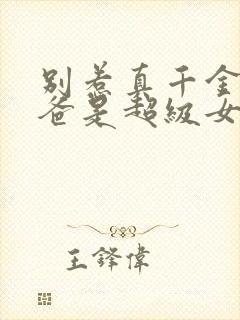 别惹真千金
爸是超级女
王鋒偉